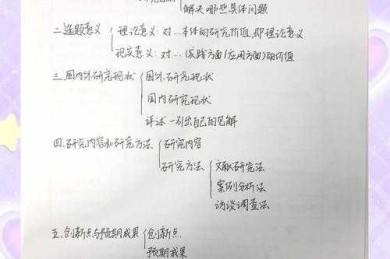 解决哪些具体问题
二.选题意义 理论意义:对…本体的研究价值,即理论意义
现实意义:对…(实践方面/应用方面)的价值
三.国内外研究现状 国外研究现状
国内研究现状
评述—引出自己的见解
四.研究内容和研究方法 研究内容
研究方法 文献研究法
案例分析法
访谈调查法
五.创新点与预期成果 创新点
预期成果